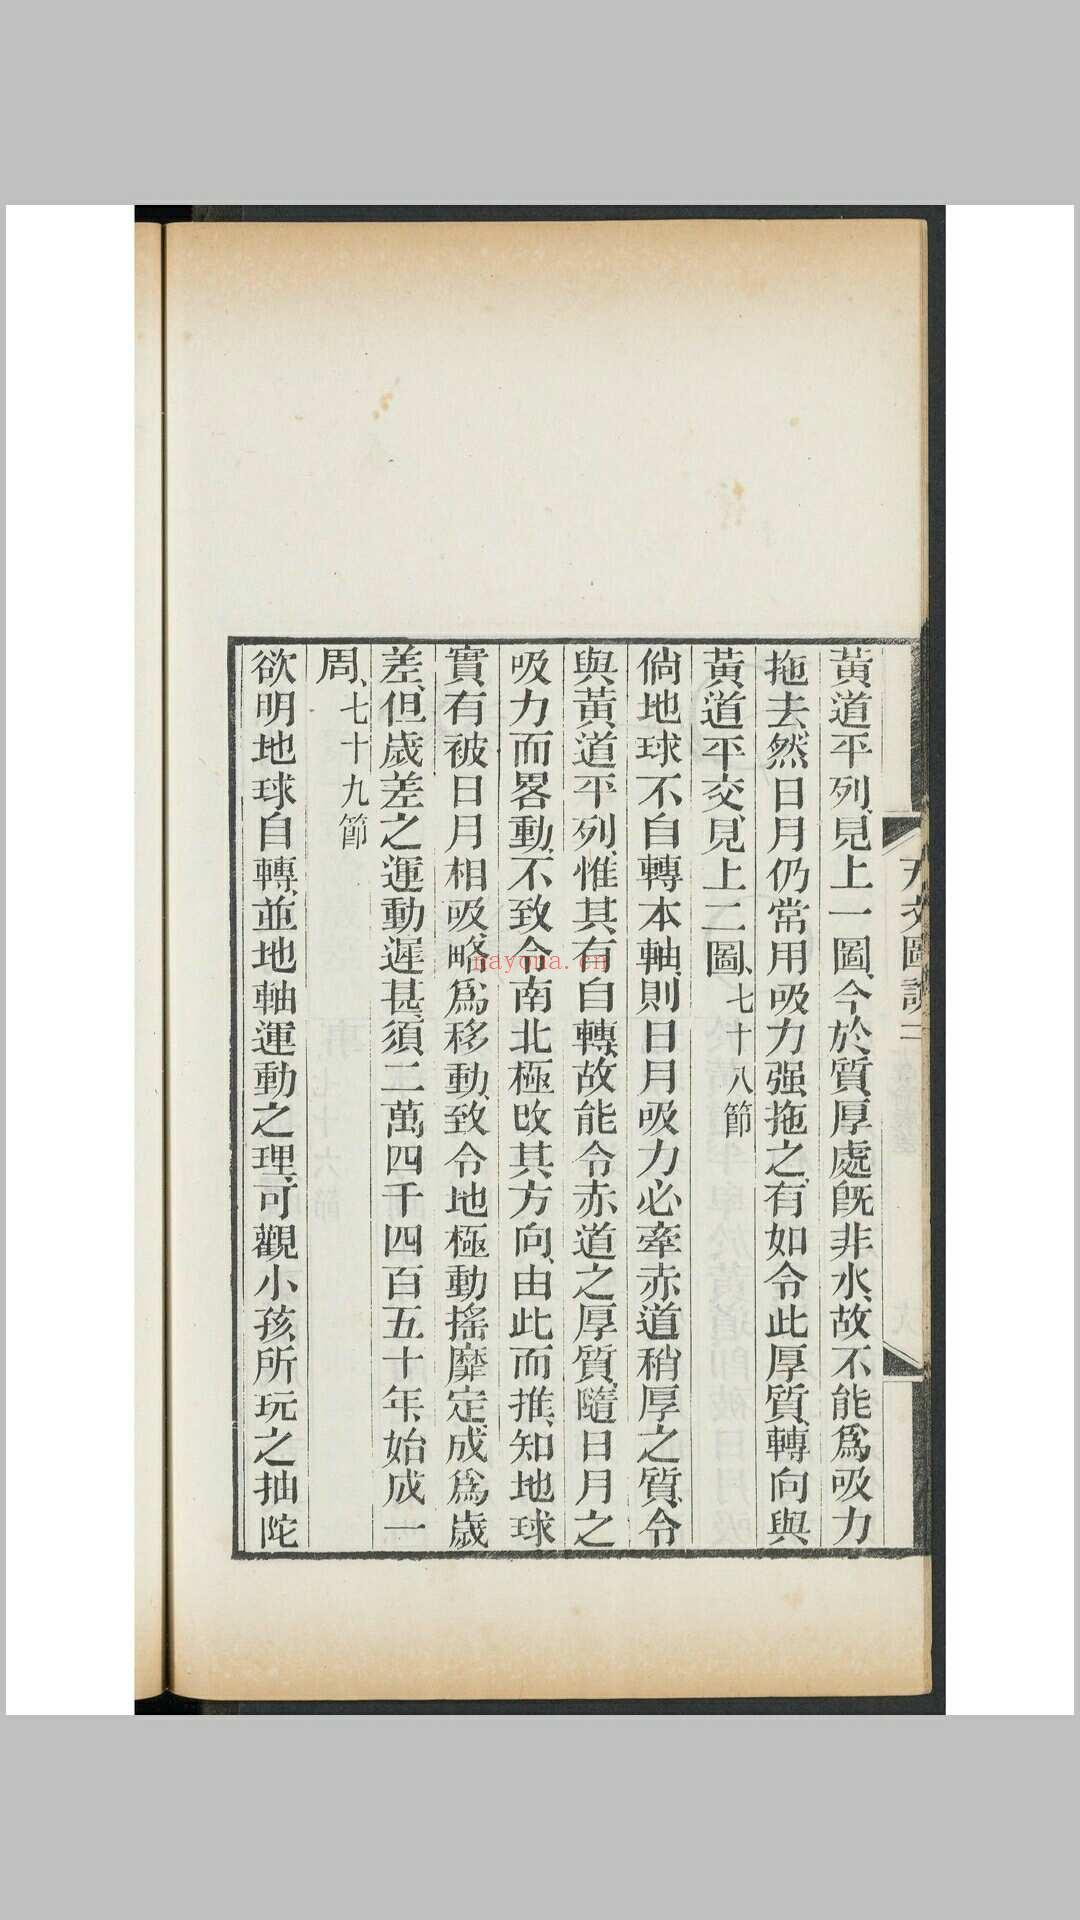 天文圖說二
黃道平列、見上一圖、今於質厚處旣非水、故不能爲吸力
拖去、然日月仍常用吸力强拖之、有如令此厚質、轉向與
黃道平交、見上二圖、七十八節
倘地球不自轉本軸、則日月吸力必牽赤道稍厚之質、令
與黃道平列、惟其有自轉、故能令赤道之厚質、隨日月之
吸力而畧動、不致令南北極改其方向、由此而推、知地球
實有被日月相吸、略爲移動、致令地極動搖靡定、成爲歲
差、但歲差之運動遲甚、須二萬四千四百五十年、始成一
周、七十九節
欲明地球自轉、並地軸運動之理、可觀小孩所玩之抽陀
nayona.cn